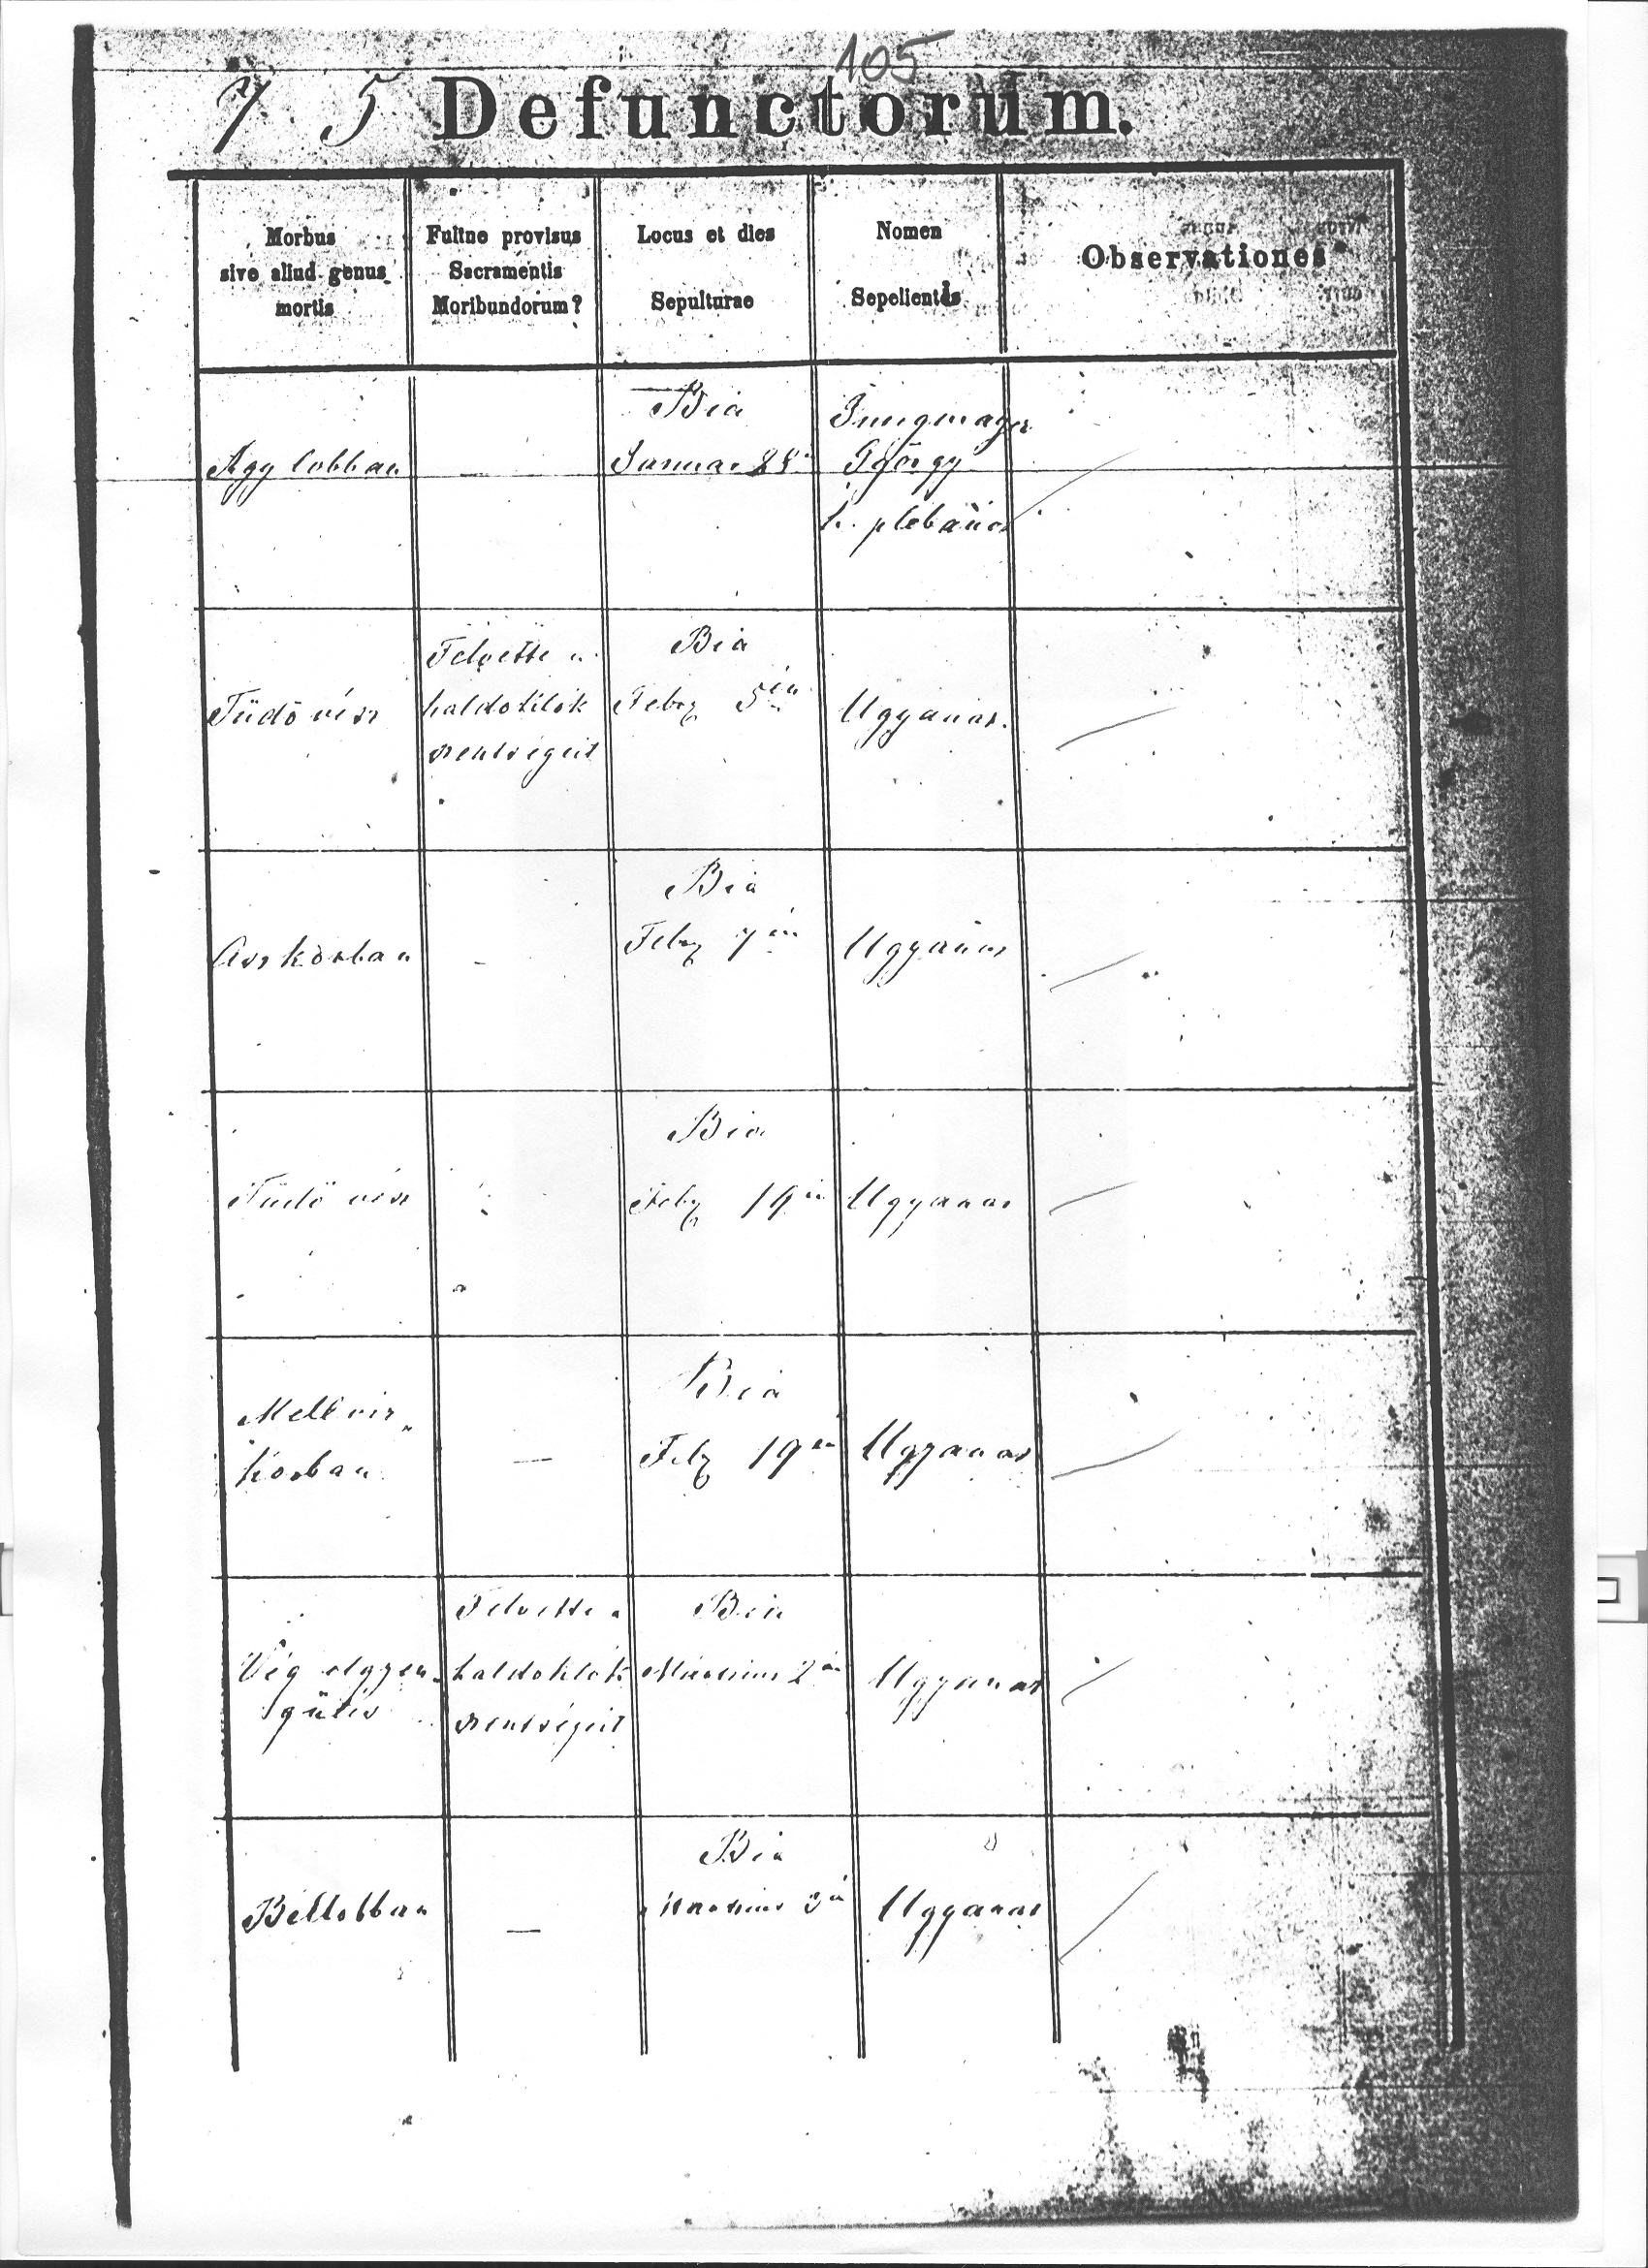 105
7 5 Defunctorum.
Morbus
sive aliud genus
mortis
Fuitne provisus
Sacramentis
Moribundorum?
Locus et dies
Sepulturae
Nomen
Sepelientis
Observationes
Agy lobban
—
Bia
Januar 28
Jungmayer
György
h. plebános
Tüdő vész
Felvette a
haldoklók
szentségeit
Bia
Febr 5én
Ugyanaz.
Aszkórban
-
Bia
Febr 7én
Ugyanaz
Tüdő vész
Bia
Febr 19én
Ugyanaz
Mell viz„
kórban
—
Bia
Febr 19én
Ugyanaz
Vég elgyen„
gülés
Felvette a
haldoklók
szentségeit
Bia
Martius 2án
Ugyanaz
Béllobban
—
Bia
Martius 3á
Ugyanaz